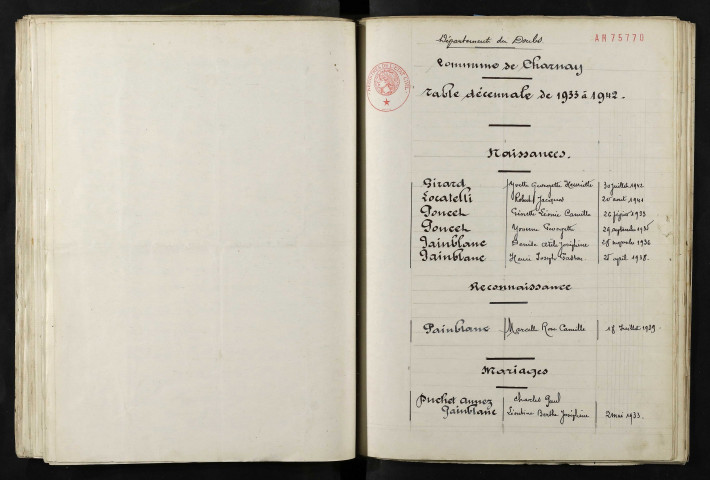 Département du Doubs
AM75770
Commune de Charnay
Table décennale de 1933 à 1942.
Naissances.
Girard Yvette Georgette Henriette 30 juillet 1942
Locatelli Robert Jacques 20 août 1941
Poncet Ginette Léonie Camille 26 février 1933
Poncet Yvonne Georgette 29 septembre 1935
Painblanc Joséphine 28 novembre 1936
Painblanc Henri Joseph 25 avril 1938.
Reconnaissance
Painblanc Marcelle Rose Camille 18 Juillet 1939
Mariages
Puchot Annez Charles Paul
Painblanc Léontine Berthe Joséphine 2 mai 1933.